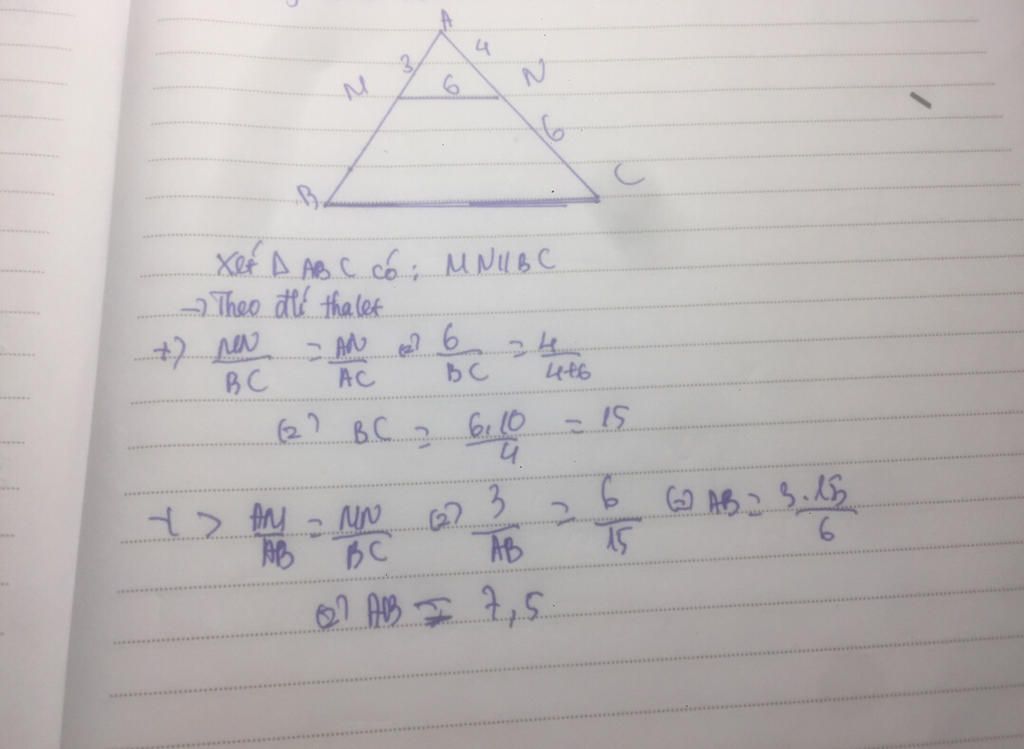 A
3 4
M 6 N
6
B C
Xét Δ ABC có: MN//BC
→ Theo đlí thalet
+) MN/BC = AN/AC (=) 6/BC = 4/4+6
(=) BC = 6.10/4 = 15
+) AM/AB = MN/BC (=) 3/AB = 6/15 (=) AB = 3.15/6
(=) AB = 7,5